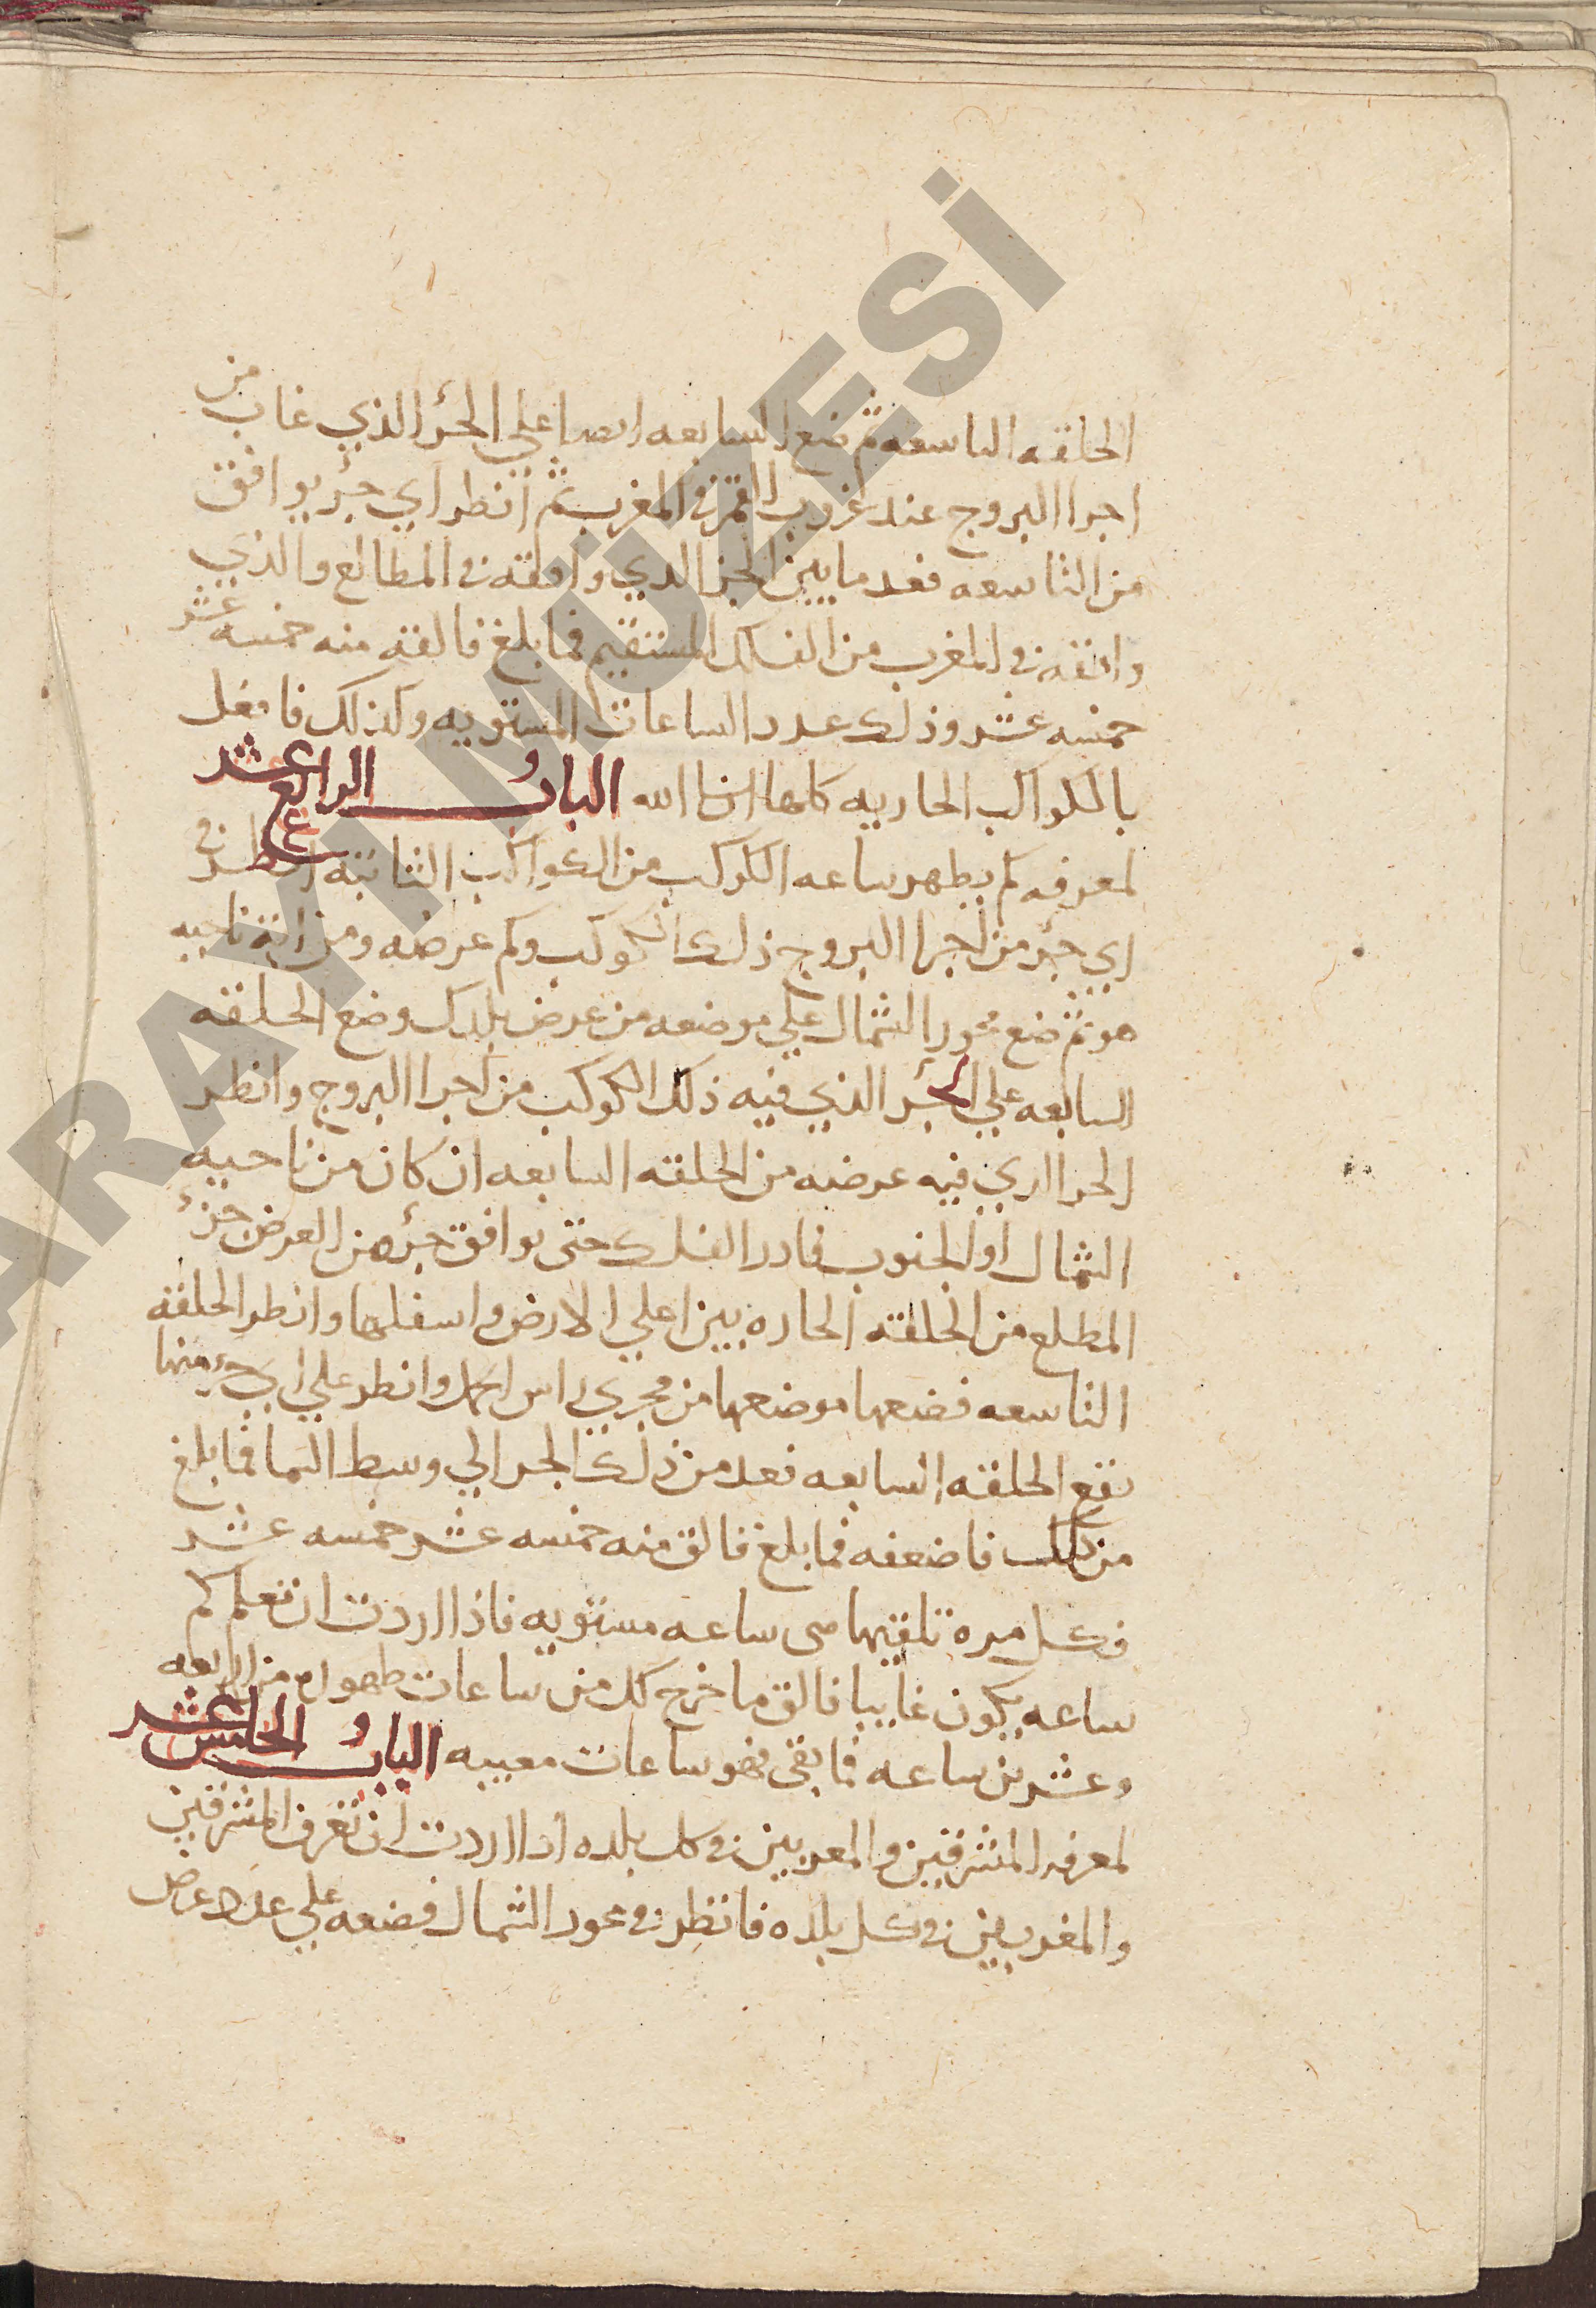 الحلقه التاسعه ثم ضع السابعه ايضا علي الجزؤ الذي غاب من
اجزا البروج عند غروب القمر في المغرب ثم انظر اي جزؤ يوافق
من التاسعه فعد ما بين الجز الدي وافقه في المطالع والذي
وافقه في المغرب من الفلك المستقيم فما بلغ فالقه منه خمسه عشر
خمسه عشر وذلك عدد الساعات المستويه وكذلك فافعل
بالكواكب الجاريه كلها ان شا الله الباب الرابع عشر
لمعرفه كم يظهر ساعه الكوكب من الكواكب الثابته انظر في
اي جزؤ من اجزا البروج ذلك الكوكب وكم عرضه ومن اية ناحيه
هو ثم ضع محور الشمال علي موضعه من عرض بلدك وضع الحلقه
السابعه علي الجزؤ الذي فيه ذلك الكوكب من اجزا البروج وانظر
الجزا الذي فيه عرضه من الحلقه السابعه ان كان من ناحيه
الشمال او الجنوب فادر الفلك حتى يوافق جزؤ من العرض جزء
المطلع من الحلقه الحاره بين اعلي الارض واسفلها وانظر الحلقه
التاسعه فضعها موضعها من مجري راس الحمل وانظر علي اي جزء منها
تقع الحلقه السابعه فعد من ذلك الجز الي وسط السما فما بلغ
من ذلك فاضعفه فما بلغ فالق منه خمسه عشر خمسه عشر
فكل مره تلقيها هي ساعه مستويه فاذا اردت ان تعلم كم
ساعه يكون غايبا فالق ما خرج لك من ساعات ظهوره من اربعه
وعشرين ساعه فما بقى فهو ساعات مغيبه الباب الخامس عشر
لمعرفه المشرقين والمغربين في كل بلده اذا اردت ان تعرف المشرقين
والمغربين في كل بلده فانظر في محور الشمال فضعه علي عدد عرض
ARAYI MÜZESİ